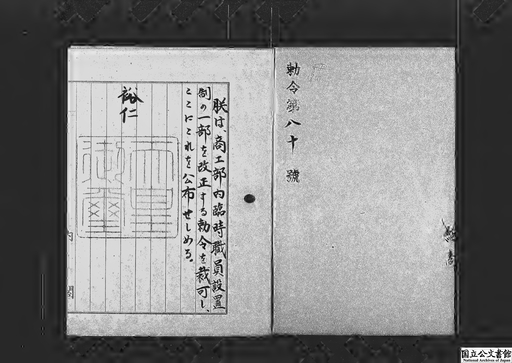 勅令第八十號
朕は、商工部内臨時職員設置
制の一部を改正する勅令を裁可し、
ここにこれを公布せしめる。
裕仁
天皇
御璽
内閣
国立公文書館
National Archives of Japan